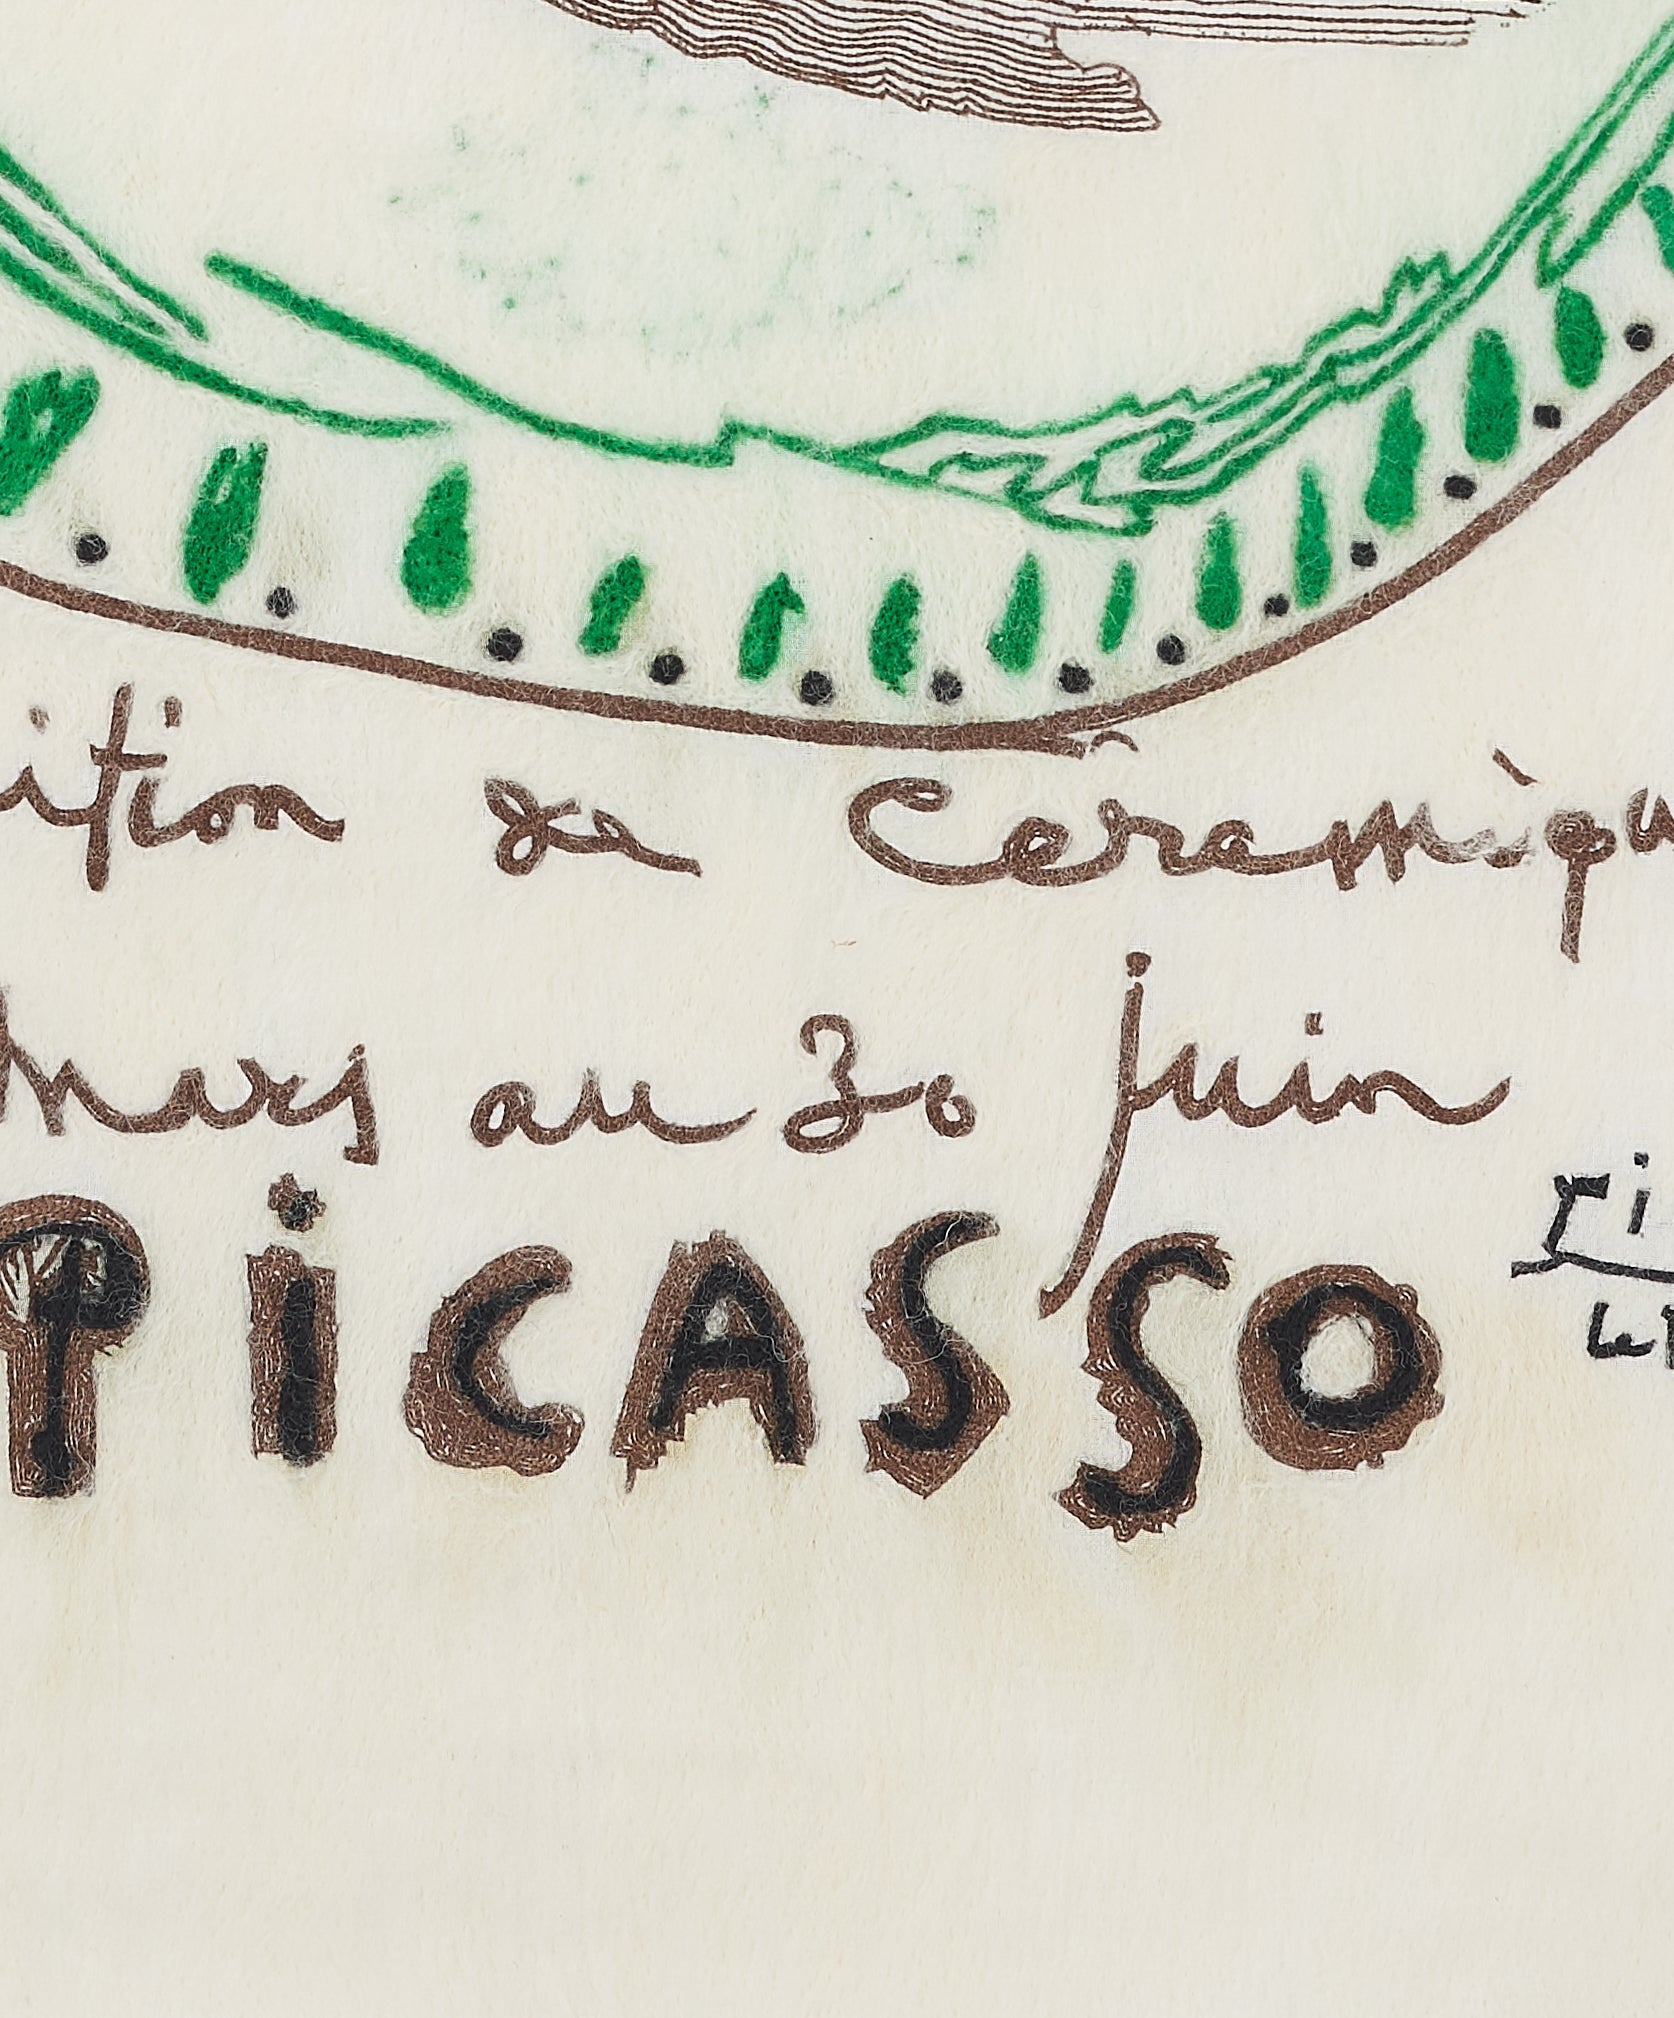 ition de Céramiqu
mars au 30 juin
PiCASSO